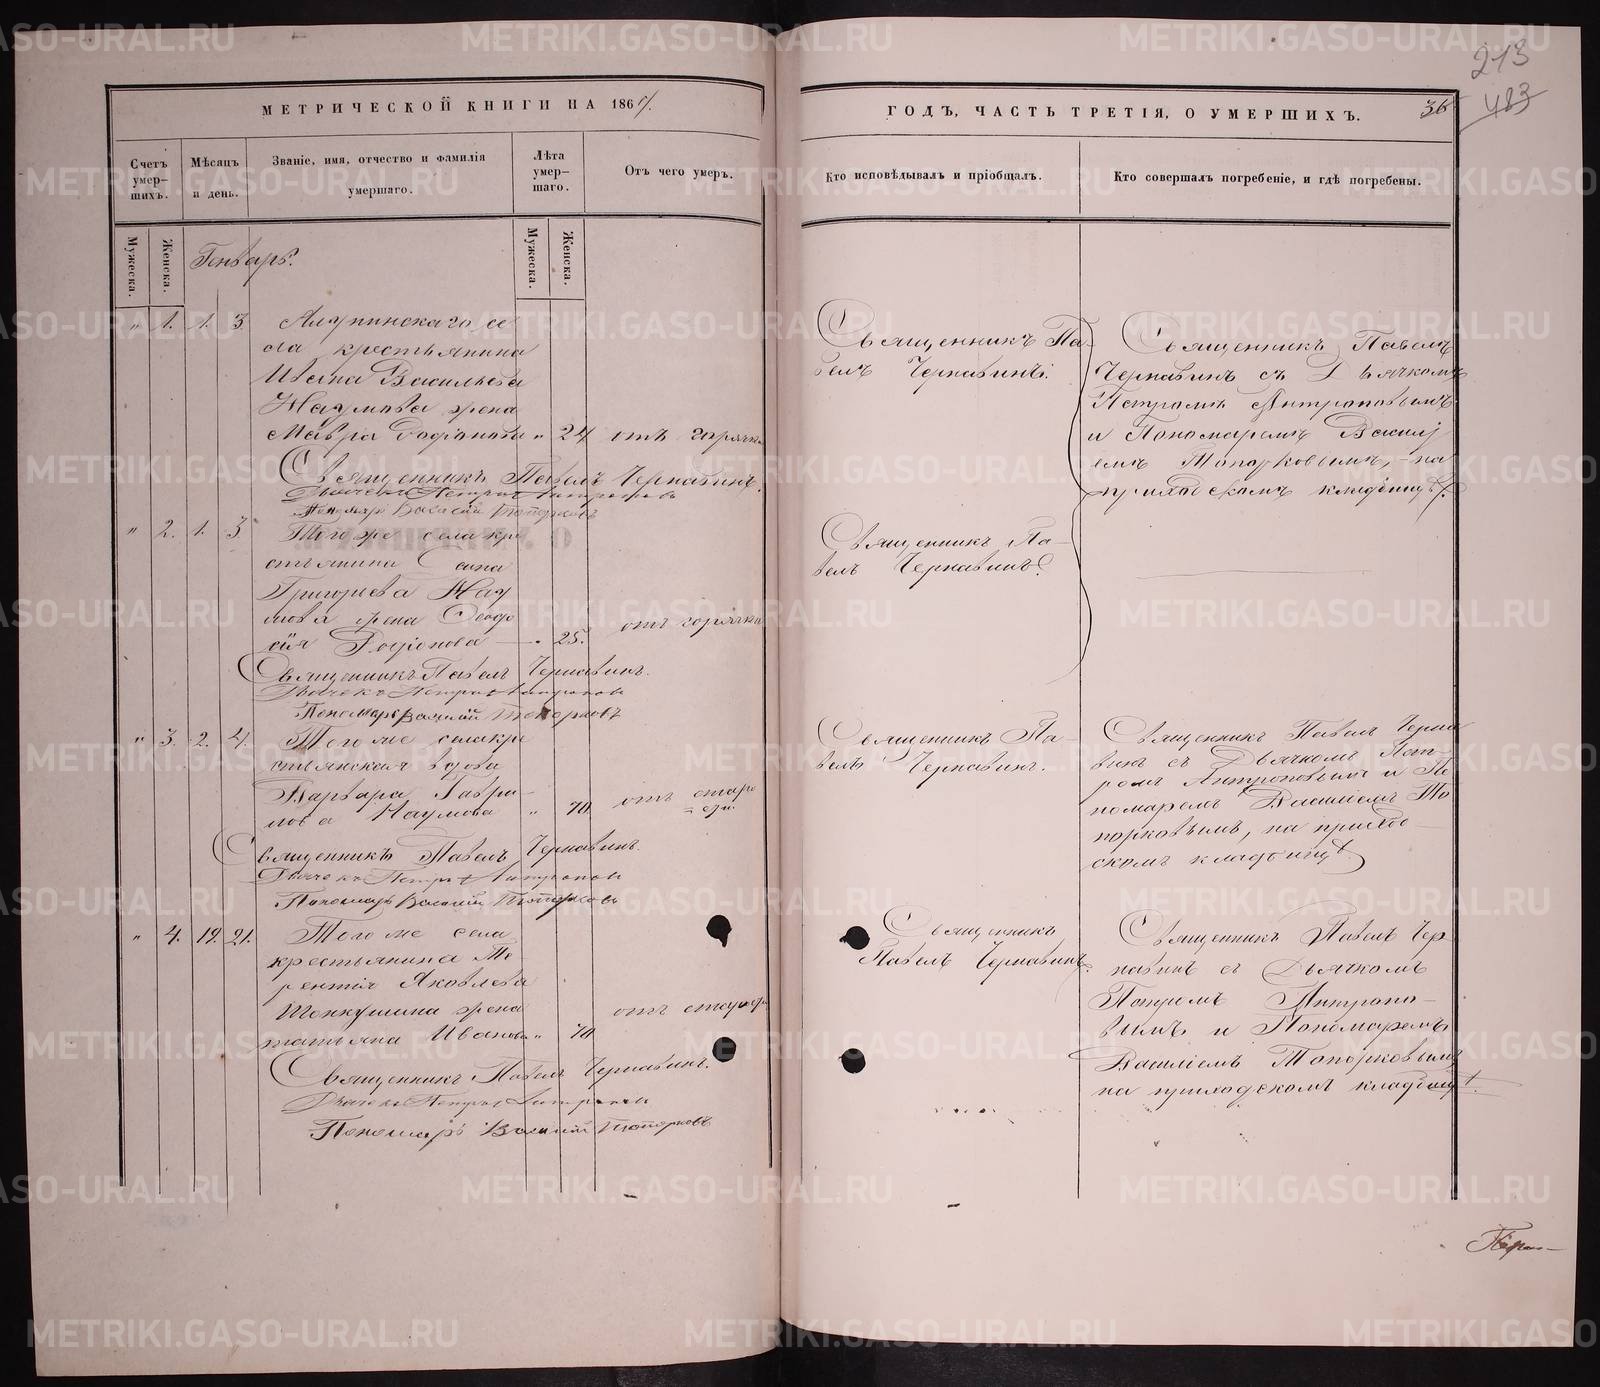 213
483
36
МЕТРИЧЕСКОЙ КНИГИ НА 186
ГОДЪ, ЧАСТЬ ТРЕТІЯ, О УМЕРШИХЪ.
Счетъ умер-шихъ.
Мѣсяцъ и день.
Званіе, имя, отчество и фамилія умершаго.
Лѣта умер-шаго.
Отъ чего умеръ.
Кто исповѣдывалъ и пріобщалъ.
Кто совершалъ погребеніе, и гдѣ погребены.
Мужеска.
Женска.
Мужеска.
Женска.
Генварь.
" 1. 1. 3
се
ла крестьянина
Ивана Васильева
Наумова жена
Мавра Родіонова " 24 отъ горячки
Священникъ Павелъ Чернавинъ.
Дьячекъ Петръ Антроповъ
Пономарь Василій Топорковъ
Священникъ Па-
велъ Чернавинъ.
Священникъ Павелъ
Чернавинъ съ Дьячкомъ
Петромъ Антроповымъ
и Пономаремъ Василі
емъ Топорковымъ, на
приходскомъ кладбищѣ.
" 2. 1. 3.
Того же села кре
стьянина
Григорьева Нау
мова жена Феодо
сія Родіонова - " 25. отъ горячки
Священникъ Павелъ Чернавинъ.
Дьячекъ Петръ Антроповъ
Пономарь Василій Топорковъ
Священникъ Па-
велъ Чернавинъ.
" 3. 2. 4.
Того же села кре
стьянская вдова
Варвара Гаври
лова Наумова " 70. отъ старо
сти.
Священникъ Павелъ Чернавинъ.
Дьячекъ Петръ Антроповъ
Пономарь Василій Топорковъ
Священникъ Па-
велъ Чернавинъ.
Священникъ Павелъ Черна
винъ съ Дьячкомъ Пет-
ромъ Антроповымъ и По
номаремъ Василіемъ То
порковымъ, на приход-
скомъ кладбищѣ.
" 4. 19. 21.
Того же села
крестьянина Те
рентія Яковлева
жена
татьяна Иванова " 70 отъ старости
Священникъ Павелъ Чернавинъ.
Дьячекъ Петръ Антроповъ
Пономарь Василій Топорковъ
Священникъ
Павелъ Чернавинъ.
Священникъ Павелъ Чер
навинъ съ Дьячкомъ
Петромъ Антропо-
вымъ и Пономаремъ
Василіемъ Топорковымъ
на приходскомъ кладбищѣ.
METRIKI.GASO-URAL.RU